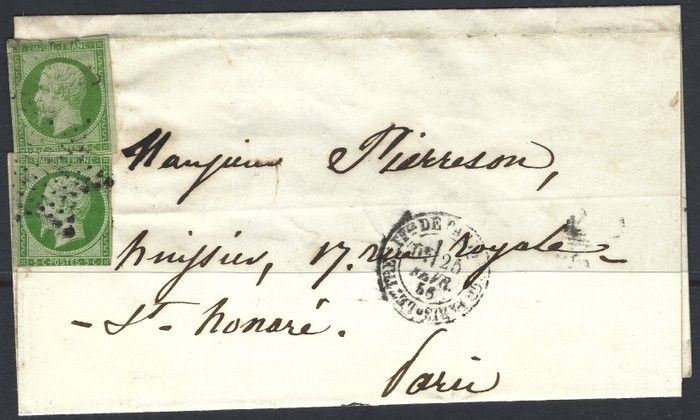 EMPIRE FRANC
5·C·POSTES·5·C
EMPIRE FRANC
5·C·POSTES·5·C
Monsieur Pierreson,
huissier, 17. rue Royale-
- St- honoré.
Paris
DE PARIS
25
NOVR
56
PARIS